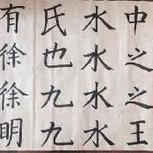 中之之王
水水水水
氏也九九
有徐徐明